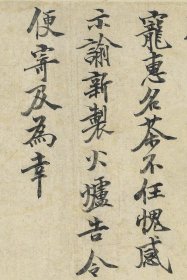 寵惠名茶不任愧感
示諭新製火爐告令
便寄及為幸